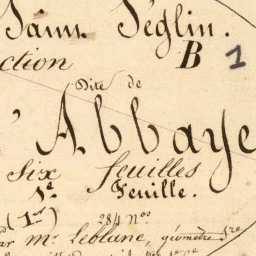 Saint Séglin.
ction B 1
Dite de
l'Abbaye
Six feuilles
1e Feuille.
(1er) 284 Nos
par Mr Leblanc, géomètre